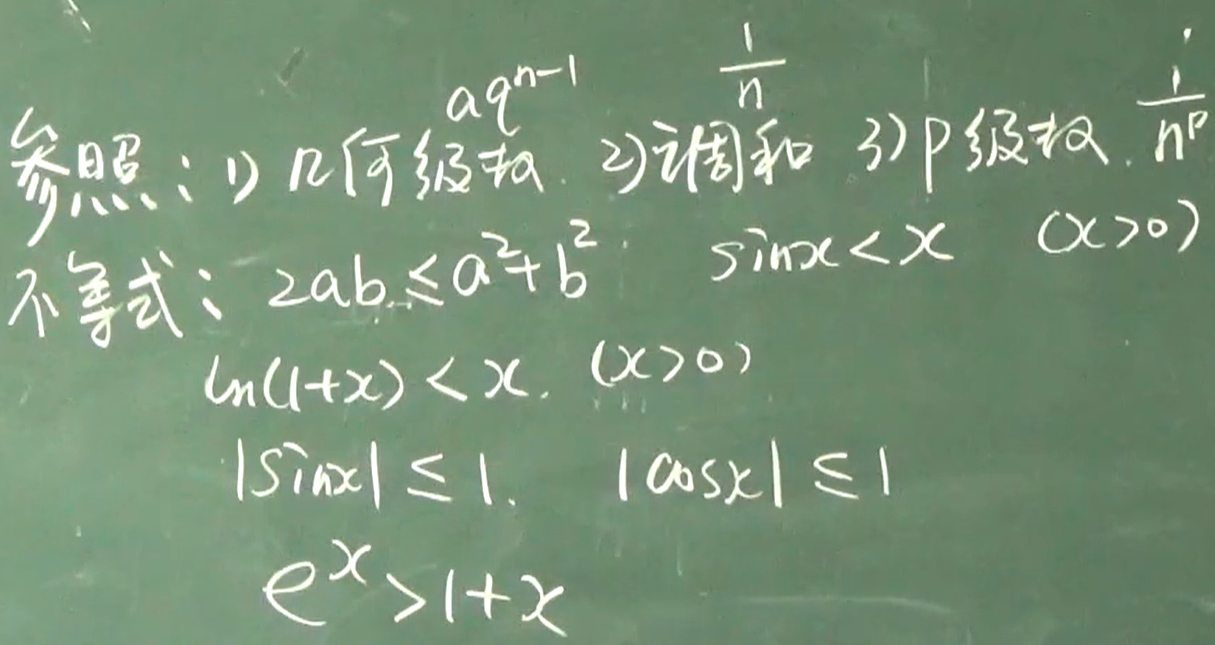 参照：1) 几何级数 aq^{n-1}. 2)调和 \frac{1}{n} 3) P级数. \frac{1}{n^p}
不等式：2ab ≤ a²+b² sinx < x (x>0)
ln(1+x) < x. (x>0)
|sinx| ≤ 1. |cosx| ≤ 1
e^x > 1+x